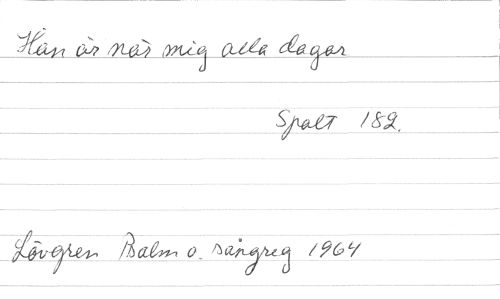 Han är när mig alla dagar
Spalt 182.
Lövgren Psalm o. sångreg 1964